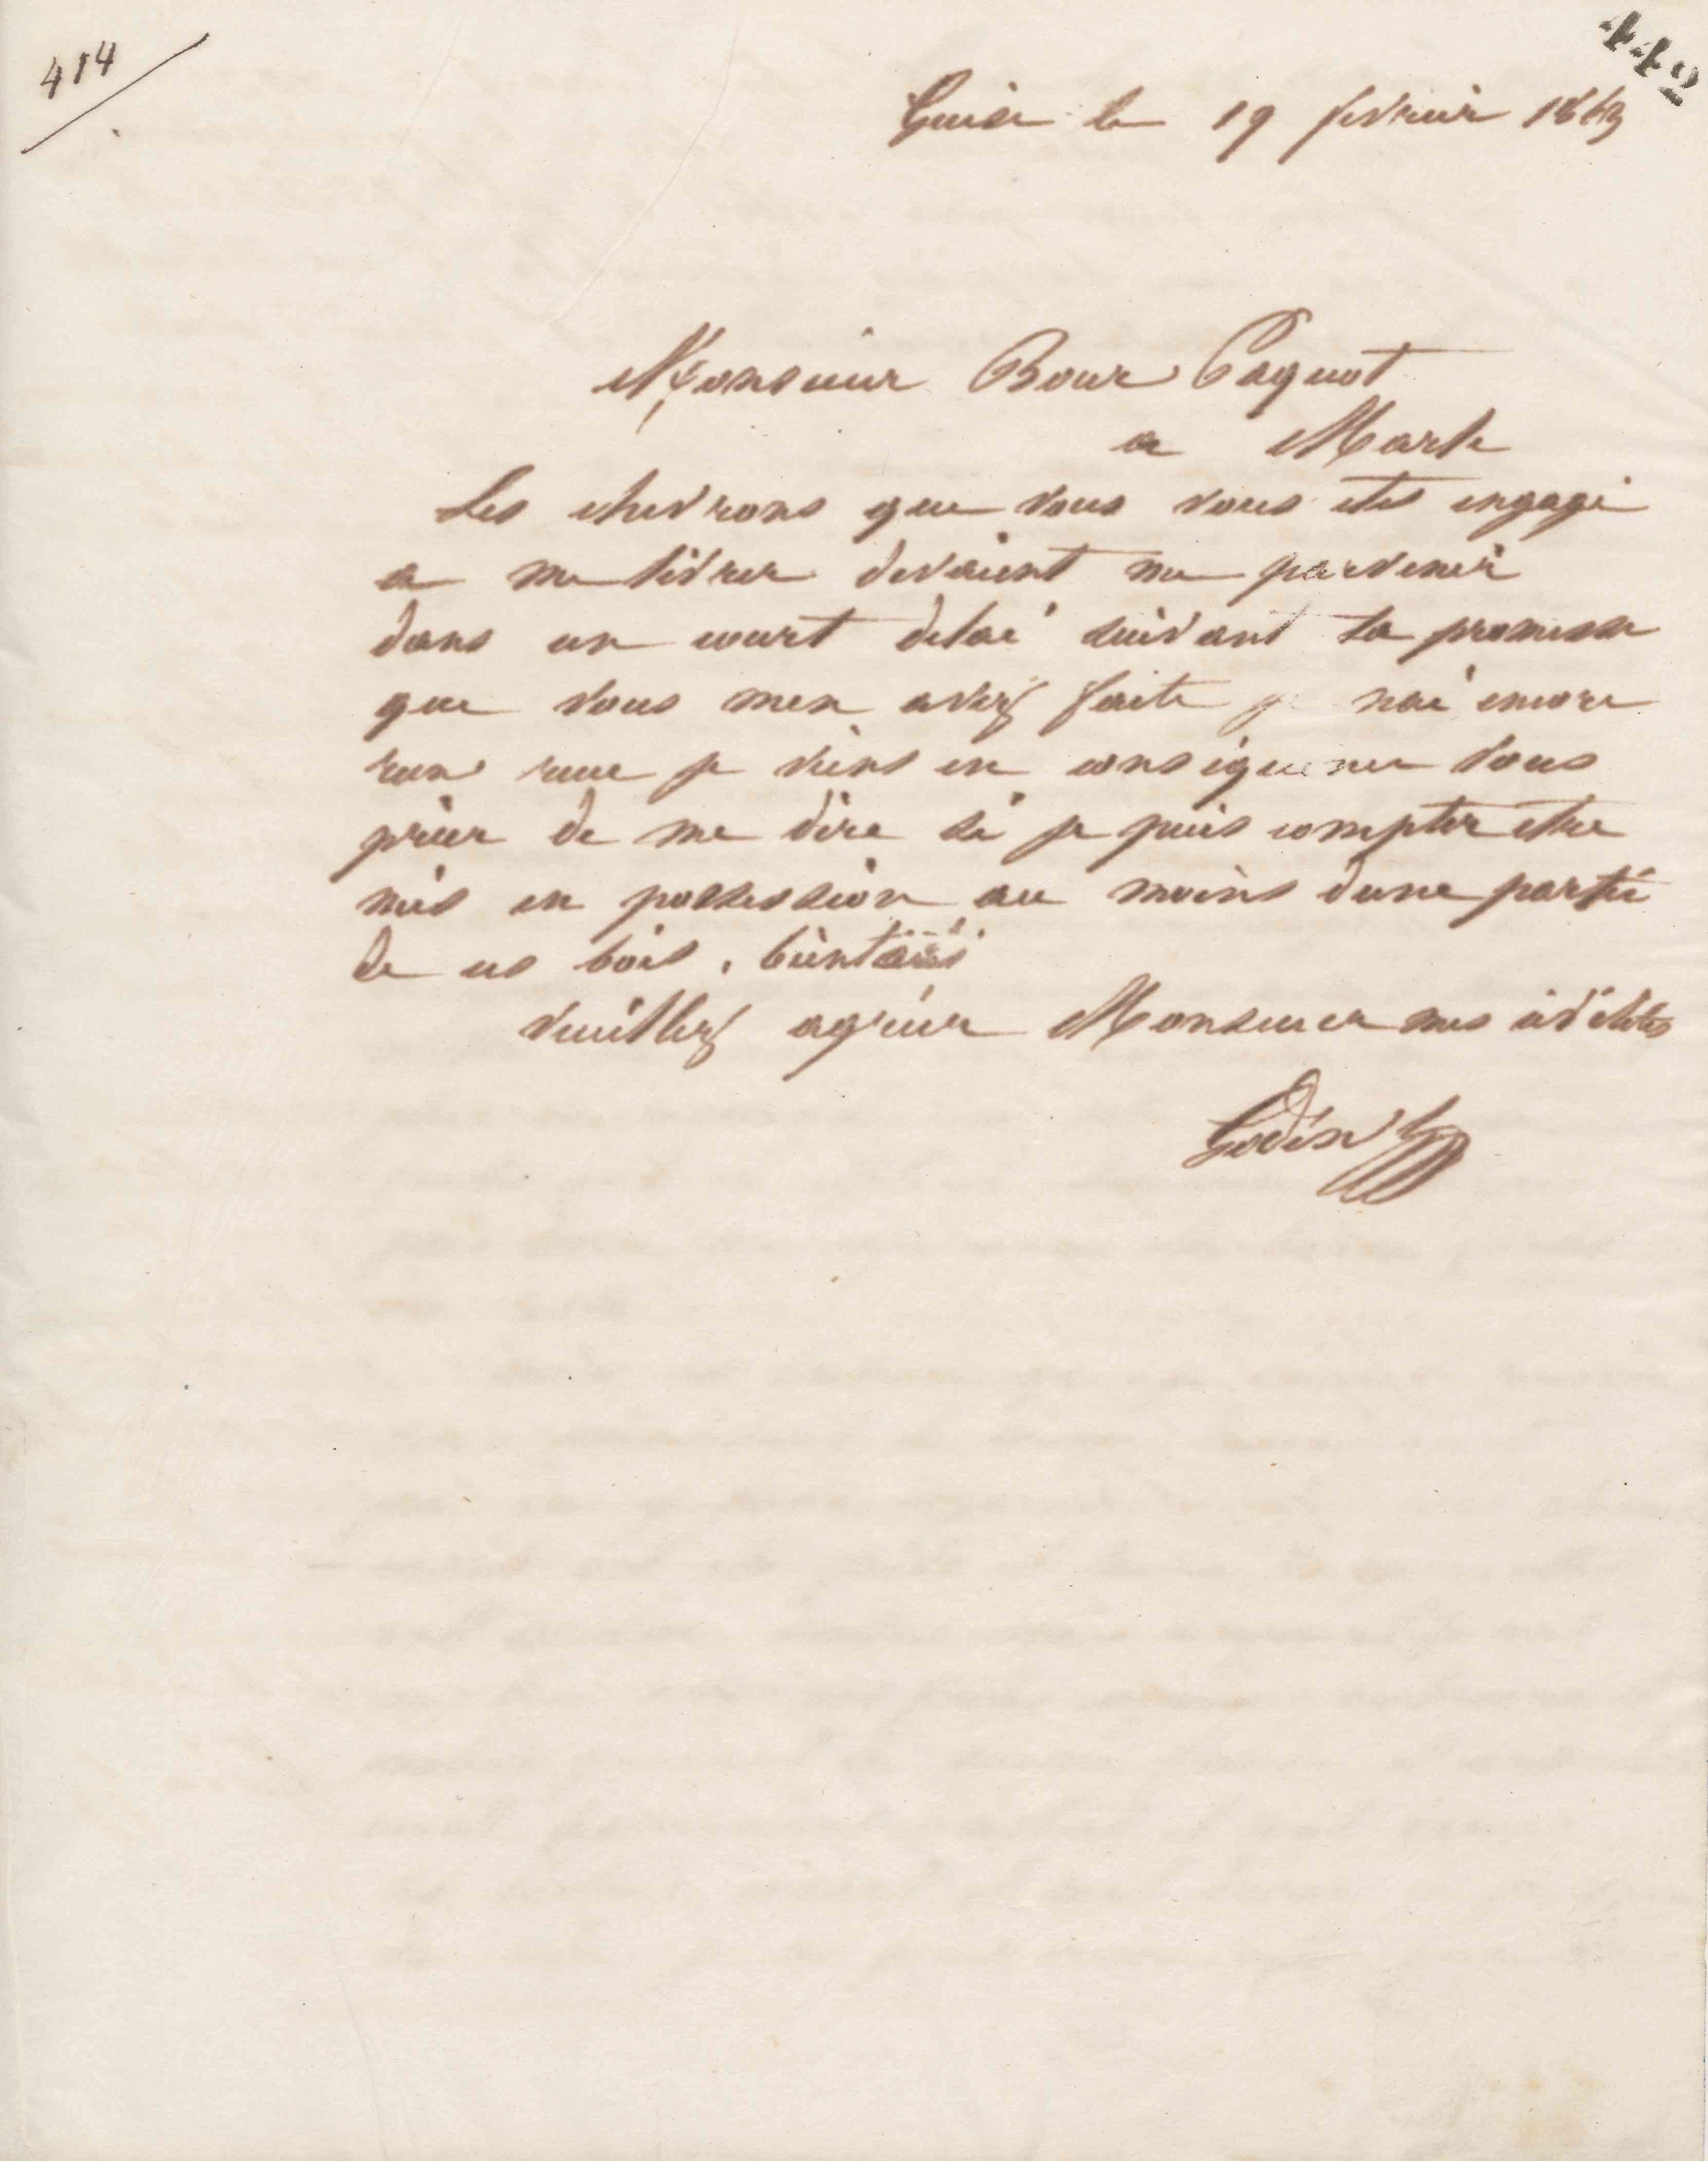 414
442
Guise le 19 fevrier 1863
Monsieur Bour Paquot
a Marle
Les chevrons que vous vous etes engagé
a me livrer devaient me parvenir
dans un court delai suivant la promesse
que vous men avez faite je nai encore
rien recu je viens en consequence vous
prier de me dire si je puis compter etre
mis en possession au moins dune partie
de ces bois, bientot
veuillez agréer Monsieur mes civilités
Godin